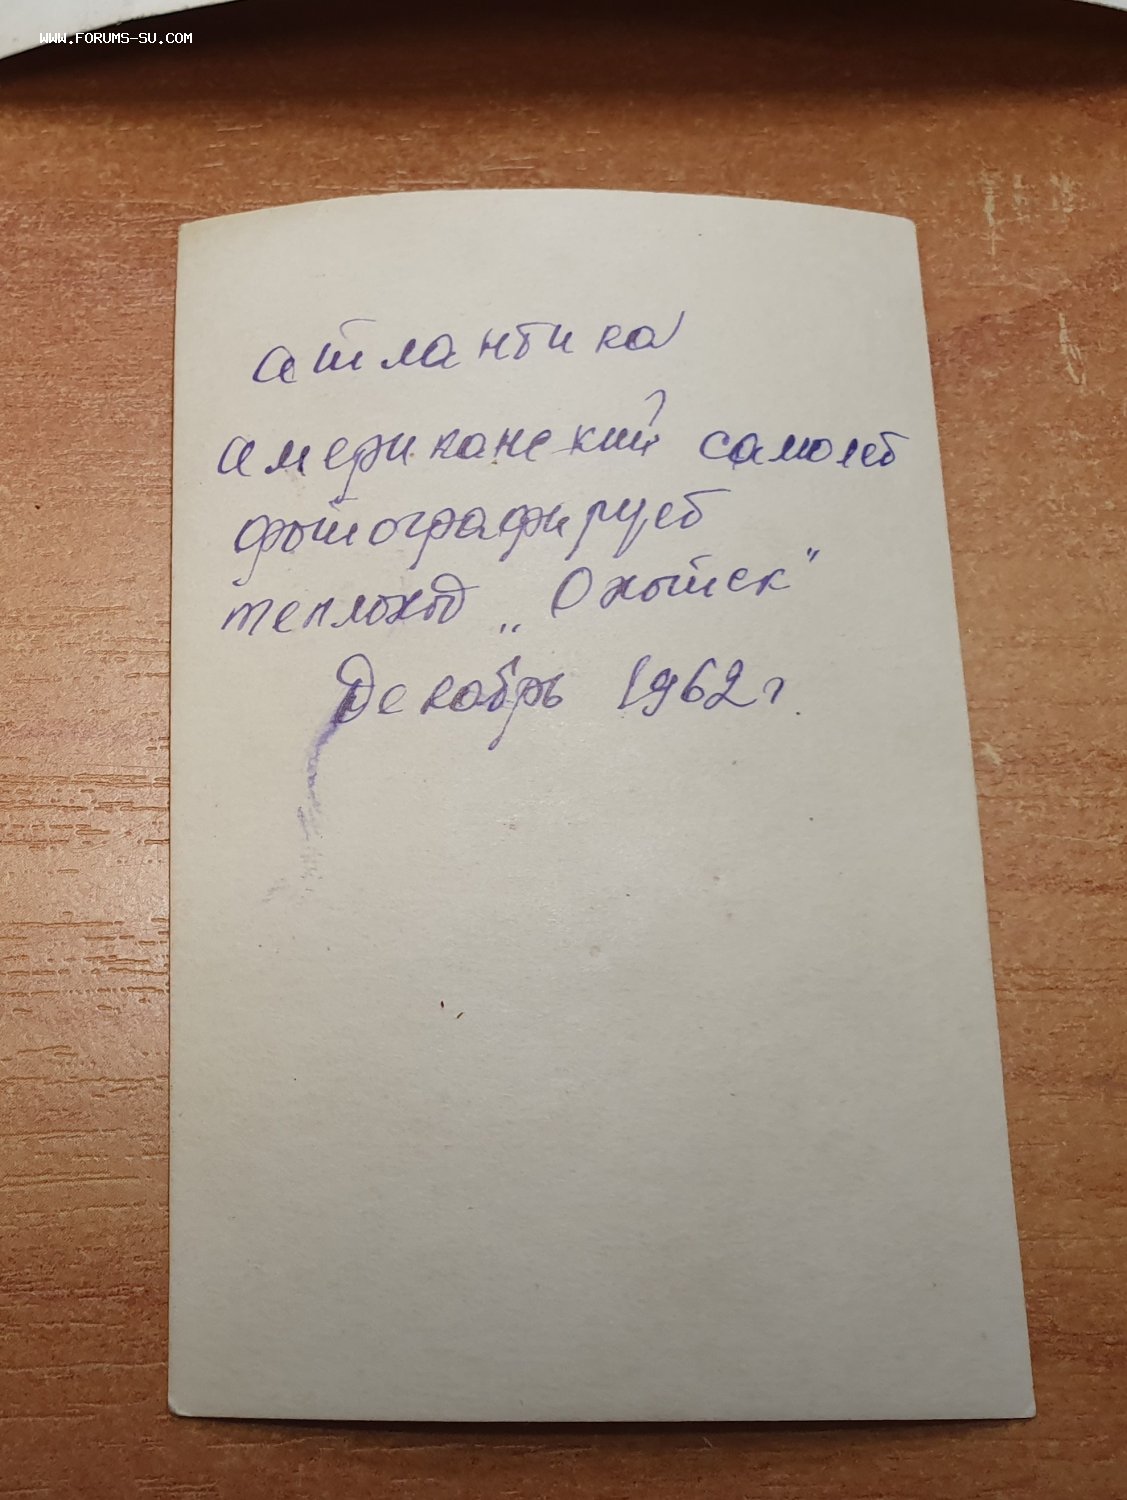 WWW.FORUMS-SU.COM
Атлантика
Американский самолет
фотографирует
теплоход „Охотск"
Декабрь 1962 г.